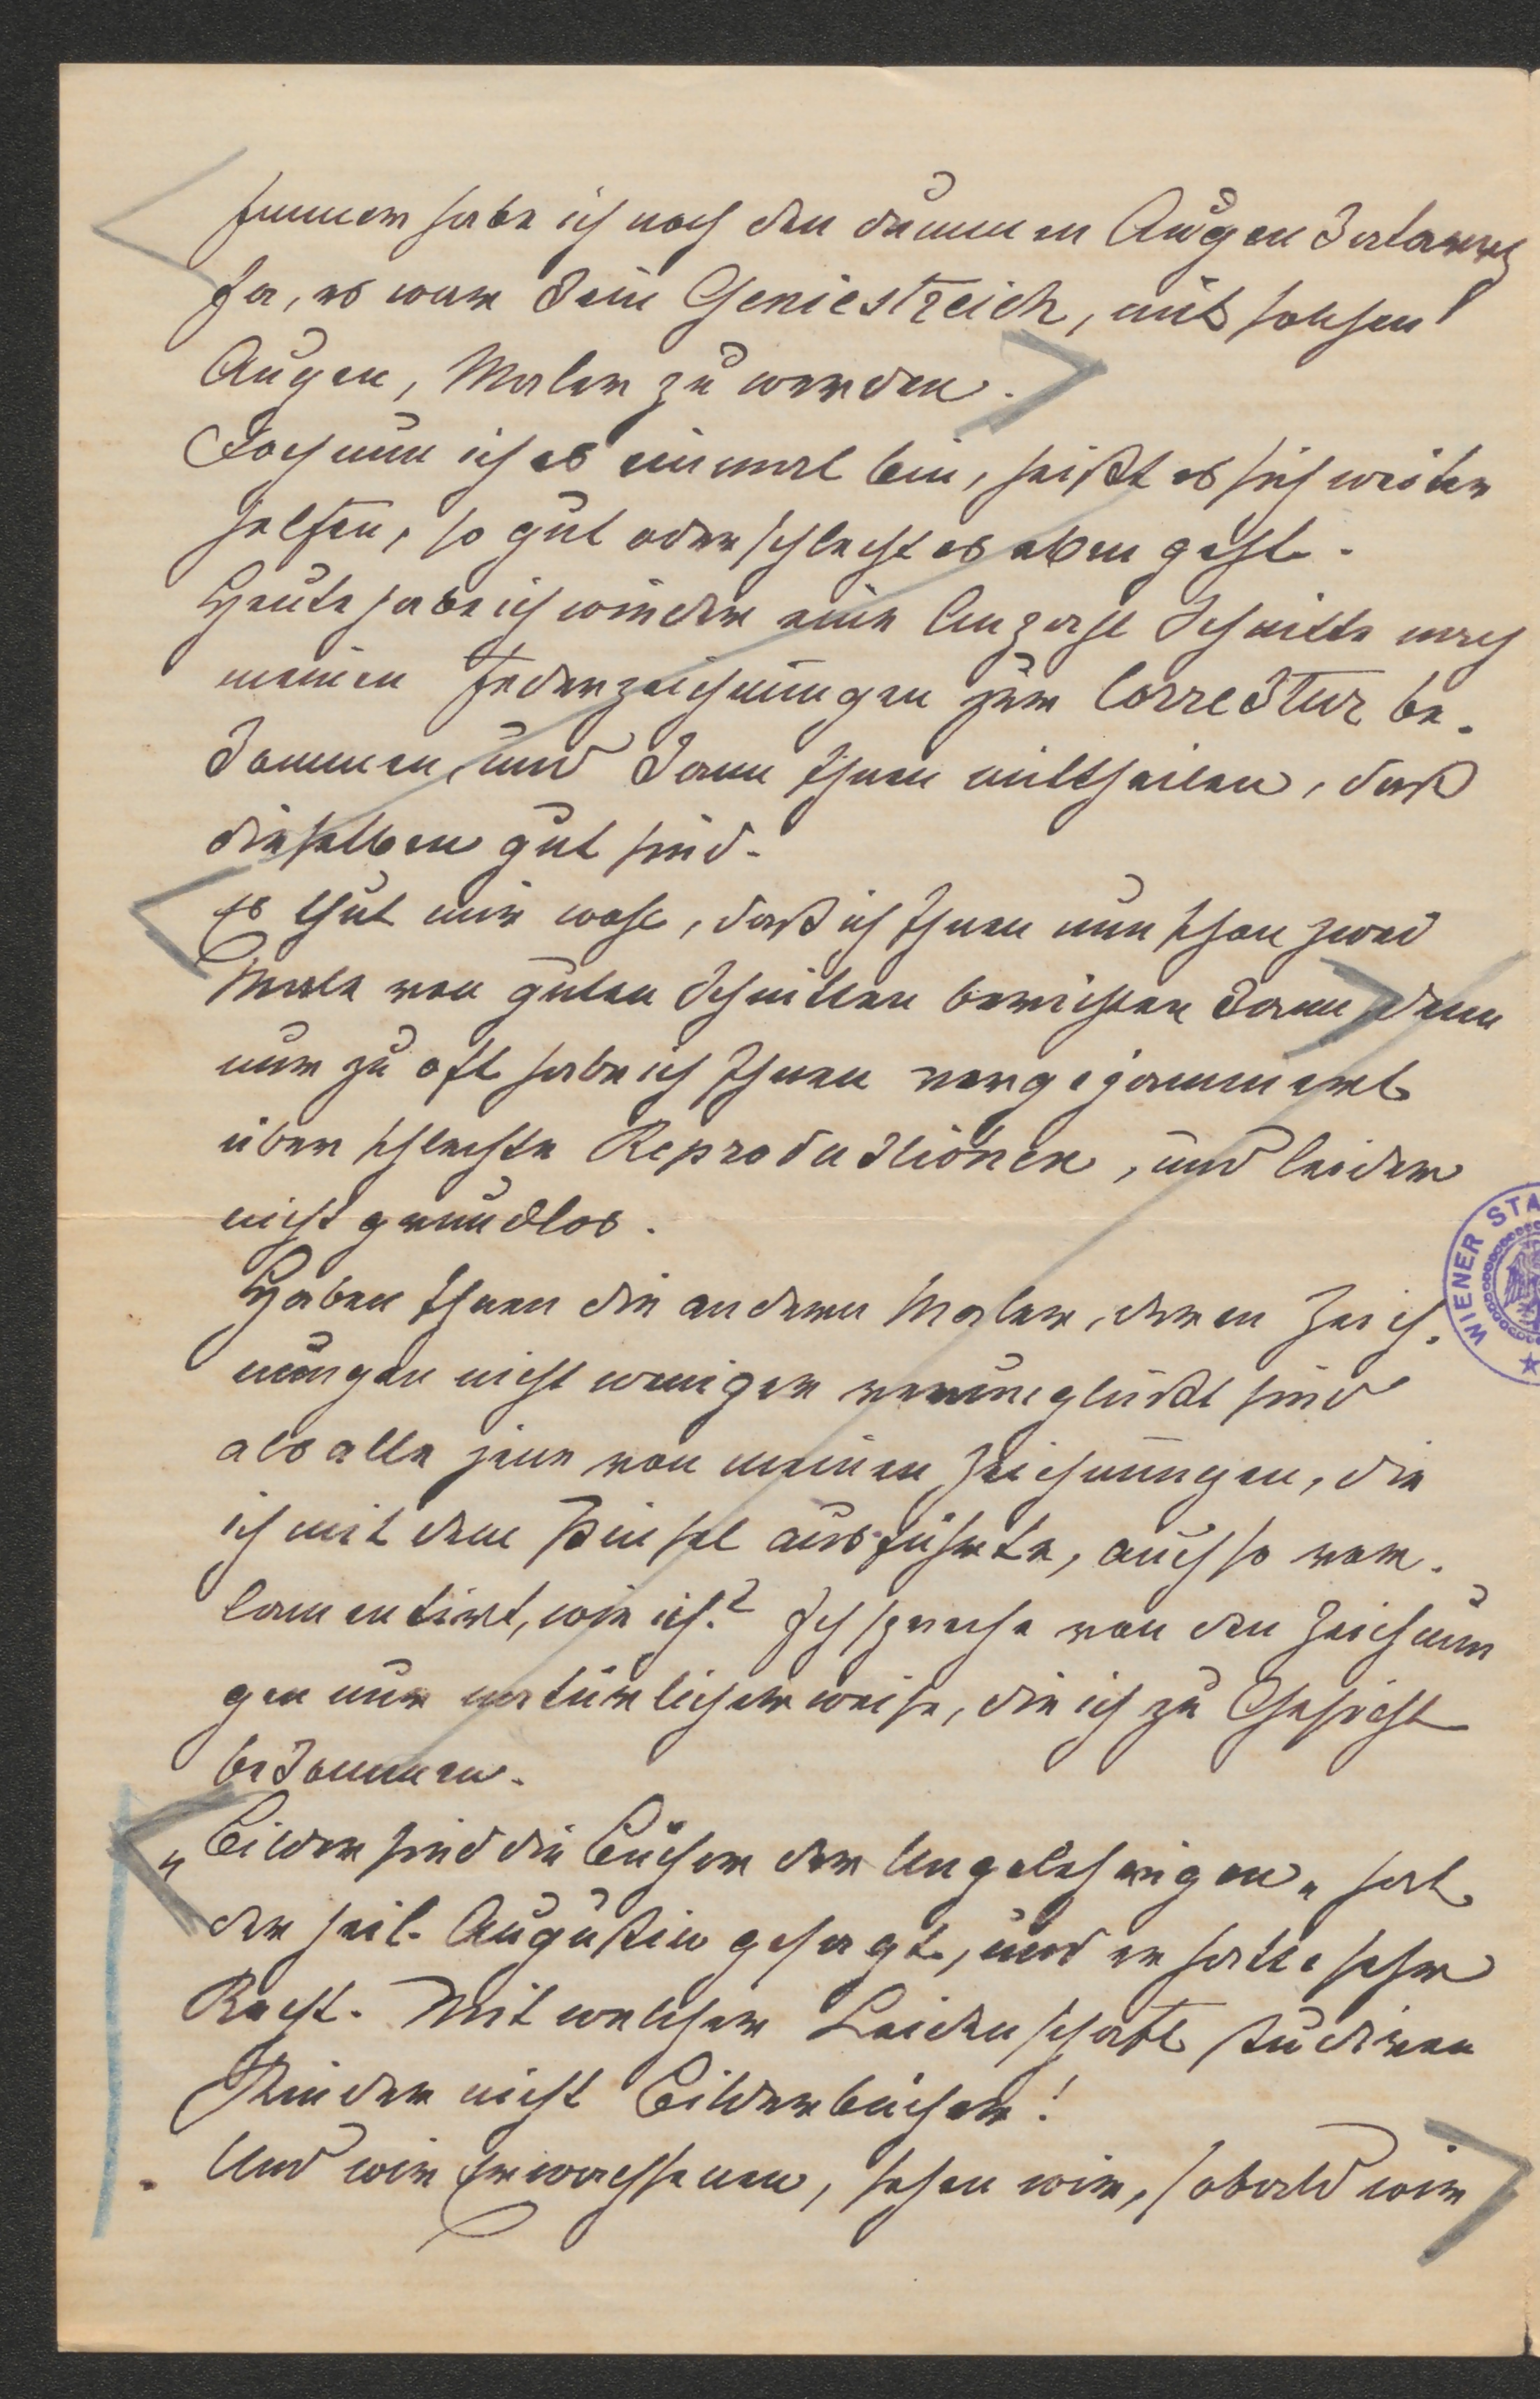 Immer habe ich noch den dummen Augenkatarrh
Ja, es war kein Geniestreich, mit solchen
Augen, Maler zu werden.
Doch nun ich es einmal bin, heißt es sich weiter
helfen, so gut oder schlecht es eben geht.
Heute habe ich wieder eine Anzahl Schnitte nach
meinen Federzeichnungen zur Correktur be-
kommen, und kann Ihnen mittheilen, daß
dieselben gut sind.
Es thut mir wohl, daß ich Ihnen nun schon zwei
Male von guten Schnitten berichten kann, denn
nur zu oft habe ich Ihnen vorgejammert
über schlechte Reproduktionen, und leider
nicht grundlos.
Haben Ihnen die anderen Maler, deren Zeich-
nungen nicht weniger verunglückt sind
als alle jene von meinen Zeichnungen, die
ich mit dem Pinsel ausführte, auch so vor-
lamentirt, wie ich? Ich spreche von den Zeichnun
gen nur natürlicherweise, die ich zu Gesicht
bekommen.
„Bilder sind die Bücher der Ungelehrigen" hat
der heil. Augustin gesagt, und er hatte sehr
Recht. Mit welcher Leidenschaft studiren
Kinder nicht Bilderbücher!
Und wir Erwachsenen, sehen wir, sobald wir
WIENER STA